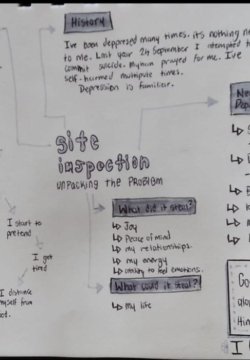 History
I've been deppresed many times. its nothing ne
to me. Last year 24 September I attempted to
commit suicide. Myhun prayed for me. I've
self-harmed multipule times.
Depression is familier.
Ne
Dep
site
inspection
UNPACKING THE PROBLEM
What did it steal?
↳ Joy
↳ Peace of mind
↳ my relationships.
↳ my energy
↳ ability to feel emotions.
What could it steal?
↳ my life
I start to
pretend
I get
tired
I distance
myself from
God.
Go
alo
Hin
I